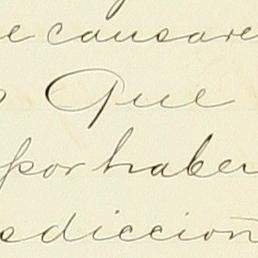 e causare
Que
por haber
sdiccion